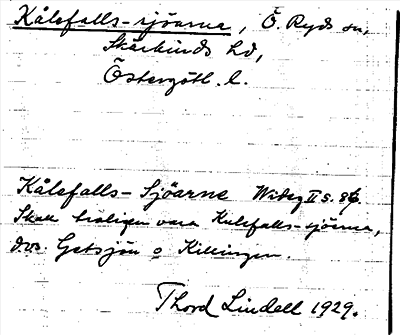 Kålsfalls-sjöarna, Ö. Ryds sn,
Skärkinds hd,
Östergötl. l.
Kålsfalls-Sjöarne Wideg II s. 86.
Skall troligen vara Kulsfalls-sjöarna,
dvs. Getsjön o Killingen.
Thord Lindell 1929.